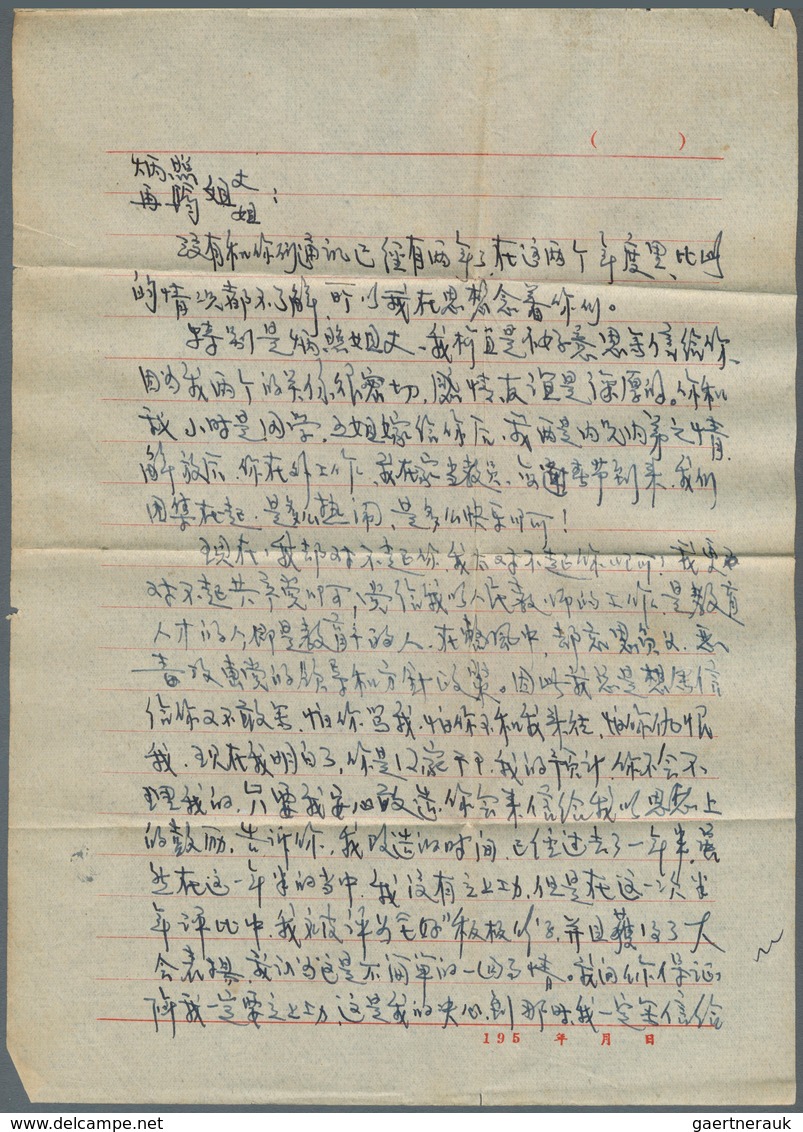 ( )
炳照
再 姐丈
姐 :
没有和你们通讯已经有两年了,在这两个年度里、比此
的情况都不了解,所以我在思想念着你们。
特别是炳照姐丈、我柯直是不好意思写信给你、
因为我两个的关係很密切,感情友谊是深厚的。你和
我小时是同学,五姐嫁给你后,我两是内兄内弟之情.
解放后、你在外工作、我在家当教员、每逢春节到来、我们
团集在起、是多么热闹、是多么快乐呵!
现在、我却对不起你、我太对不起你呵!我更加
对不起共产党呵,党给我以人民教师的工作、是教育
人才的人、即是教育干的人、在整风中、却忘恩负义、恶
毒攻击党的领导和方针政策。因此我总是想写信
给你又不敢写、怕你骂我、怕你不和我来往、怕你仇恨
我、现在我明白了、你是国家干下、我的予预计、你不会不
理我的、只要我安心改造、你会来信给我以思想上
的鼓励、告诉你、我改造的时间、已经过去了一年半、虽
然在这一年半的当中、我没有立上功、但是在这一次半
年评比中、我被评为"七好"积极份子、并且獲得了大
会表揚、我认为这是不简单的一回事情。我向你保证
我一定要立上功、这是我的决心、到那时我一定写信给
195 年 月 日
gaertnerauk